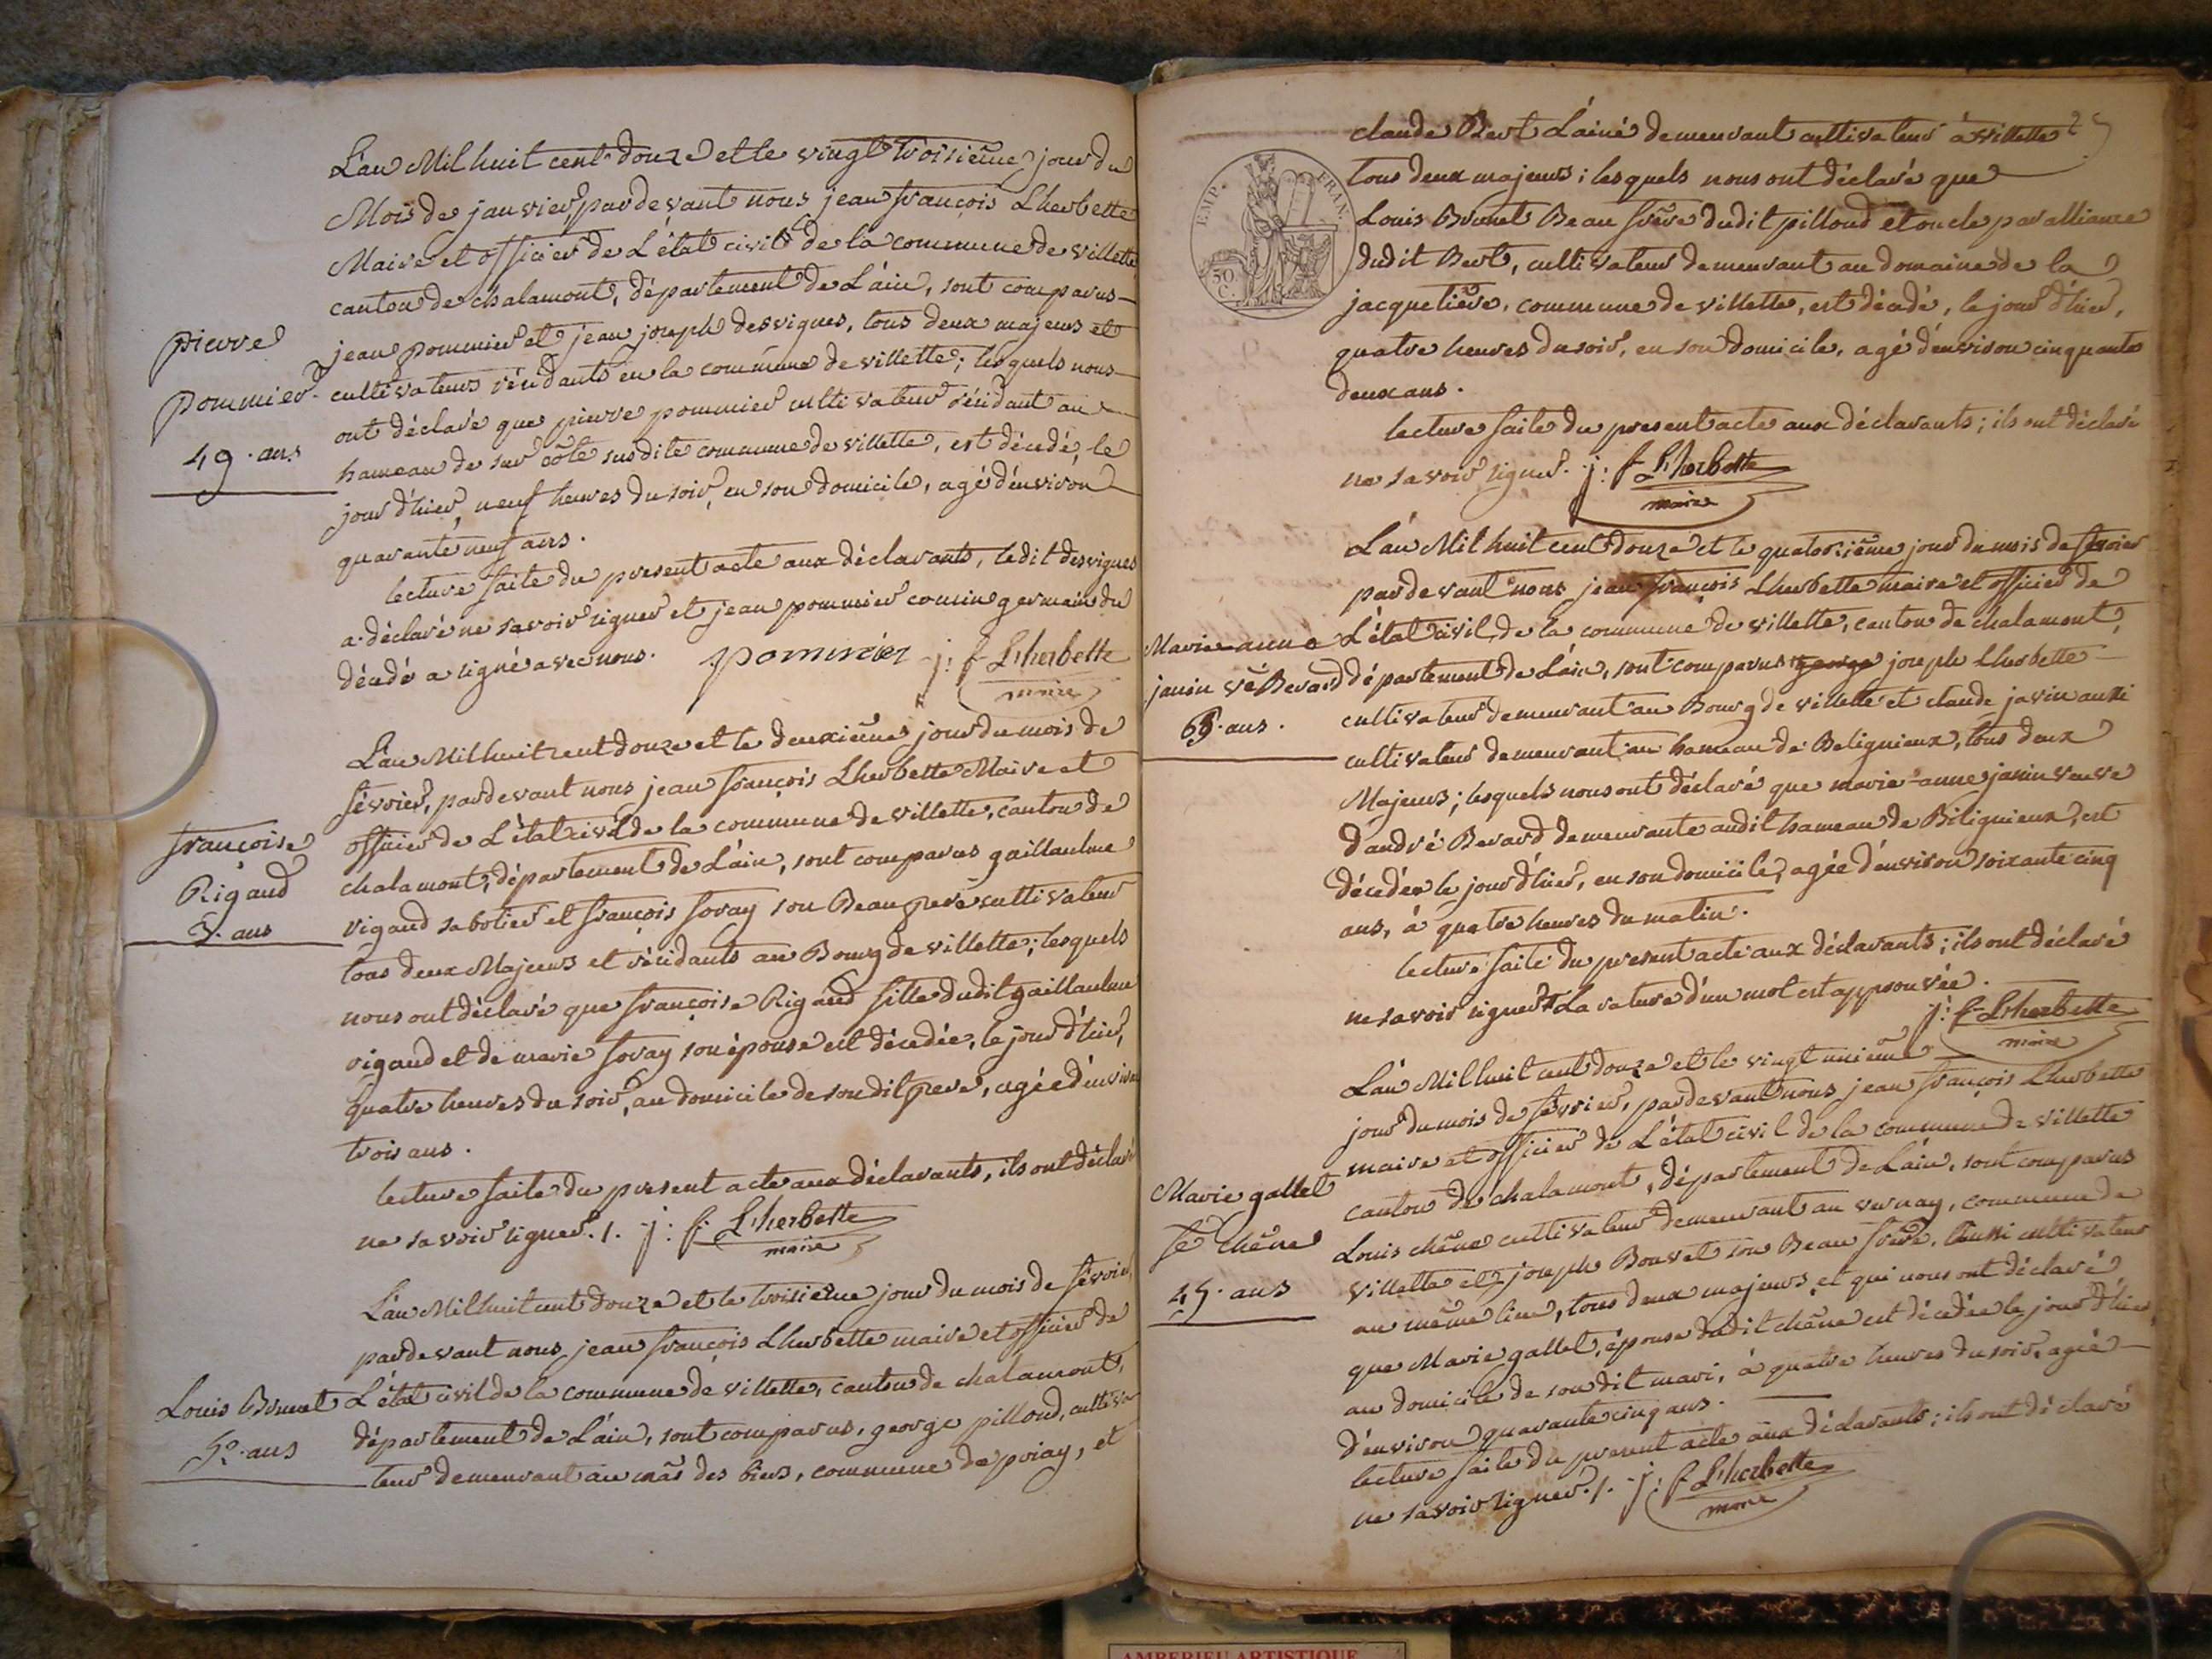 L'an Mil huit cent douze et le vingt troisième jour du
Mois de janvier, pardevant nous jean françois Lherbette
Maire et officier de L'état civil de la commune de villette
canton de chalamont, département de L'ain, sont comparus
jean pommier et jean joseph desvignes, tous deux majeurs et
cultivateurs résidants en la commune de villette; lesquels nous
ont déclaré que pierre pommier cultivateur résidant au
hameau de sur côte susdite commune de villette, est décedé, le
jour d'hier, neuf heures du soir, en son domicile, agé d'environ
quarante neuf ans.
lecture faite du present acte aux déclarants, ledit desvignes
a déclaré ne savoir signer et jean pommier cousin germain du
décédé a signé avec nous. pommier j: f Lherbette
maire
pierre
pommier.
49. ans
L'an Mil huit cent douze et le deuxième jour du mois de
février, pardevant nous jean françois Lherbette Maire et
officier de L'état civil de la commune de villette, canton de
chalamont, département de L'ain, sont comparus guillaulme
rigaud sabotier et françois foray son Beau pere cultivateur
tous deux Majeurs et résidants au Bourg de villette; lesquels
nous ont déclaré que françoise Rigaud fille dudit guillaulme
rigaud et de marie foray son épouse est décedée, le jour d'hier,
quatre heures du soir, au domicile de son dit pere, agée d'environ
trois ans.
lecture faite du present acte aux déclarants, ils ont déclaré
ne savoir signer. /. j: f: Lherbette
maire
françoise
Rigaud
3. ans
L'an Mil huit cent douze et le troisième jour du mois de févrie,
pardevant nous jean françois Lherbette maire et officier de
L'état civil de la commune de villette, canton de chalamont,
département de L'ain, sont comparus, george pilloud, cultiva
teur demeurant au mâs des biers, commune de priay, et
Louis Brunet
52. ans
claude Bert L'ainé demeurant cultivateur à villette
tous deux majeurs; lesquels nous ont déclaré que
Louis Brunet Beau frère dudit pilloud et oncle par alliance
dudit Bert, cultivateur demeurant au domaine de la
jacquetière, commune de villette, est décédé, le jour d'hier,
quatre heures du soir, en son domicile, agé d'environ cinquante
deux ans.
lecture faite du present acte aux déclarants; ils ont déclaré
ne savoir signer. j: f Lherbette
maire
EMP. FRAN.
50
C.
L'an Mil huit cent douze et le quatorzième jour du mois de fevrier
pardevant nous jean françois Lherbette maire et officier de
L'état civil, de la commune de villette, canton de chalamont,
département de L'ain, sont comparus george joseph Lherbette
cultivateur demeurant au Bourg de villette et claude janin aussi
cultivateur demeurant au hameau de Beligneux, tous deux
Majeurs; lesquels nous ont déclaré que marie-anne janin veuve
d'andré Berard demeurante audit hameau de Biligneux, est
décedée le jour d'hier, en son domicile, agée d'environ soixante cinq
ans, à quatre heures du matin.
lecture faite du present acte aux déclarants; ils ont déclaré
ne savoir signer. La rature d'un mot est approuvée.
j: f Lherbette
maire
Marie-anne
janin vê Berard
65. ans.
L'an Mil huit cent douze et le vingt unième
jour du mois de févrrier, pardevant nous jean françois Lherbette
maire et officier de L'état civil de la commune de villette
canton de chalamont, département de L'ain, sont comparus
Louis chêne cultivateur demeurant au vernay, commune de
villette et joseph Bouvet son Beau frère, aussi cultivateur
au même lieu, tous deux majeurs et qui nous ont déclaré
que Marie gallet, épouse dudit chêne est décedée le jour d'hier
au domicile de son dit mari, à quatre heures du soir, agée
d'environ quarante cinq ans.
lecture faite du present acte aux déclarants; ils ont déclaré
ne savoir signer. /. j: f Lherbette
maire
Marie gallet
fe chêne
45. ans
AMBERIEU ARTISTIQUE